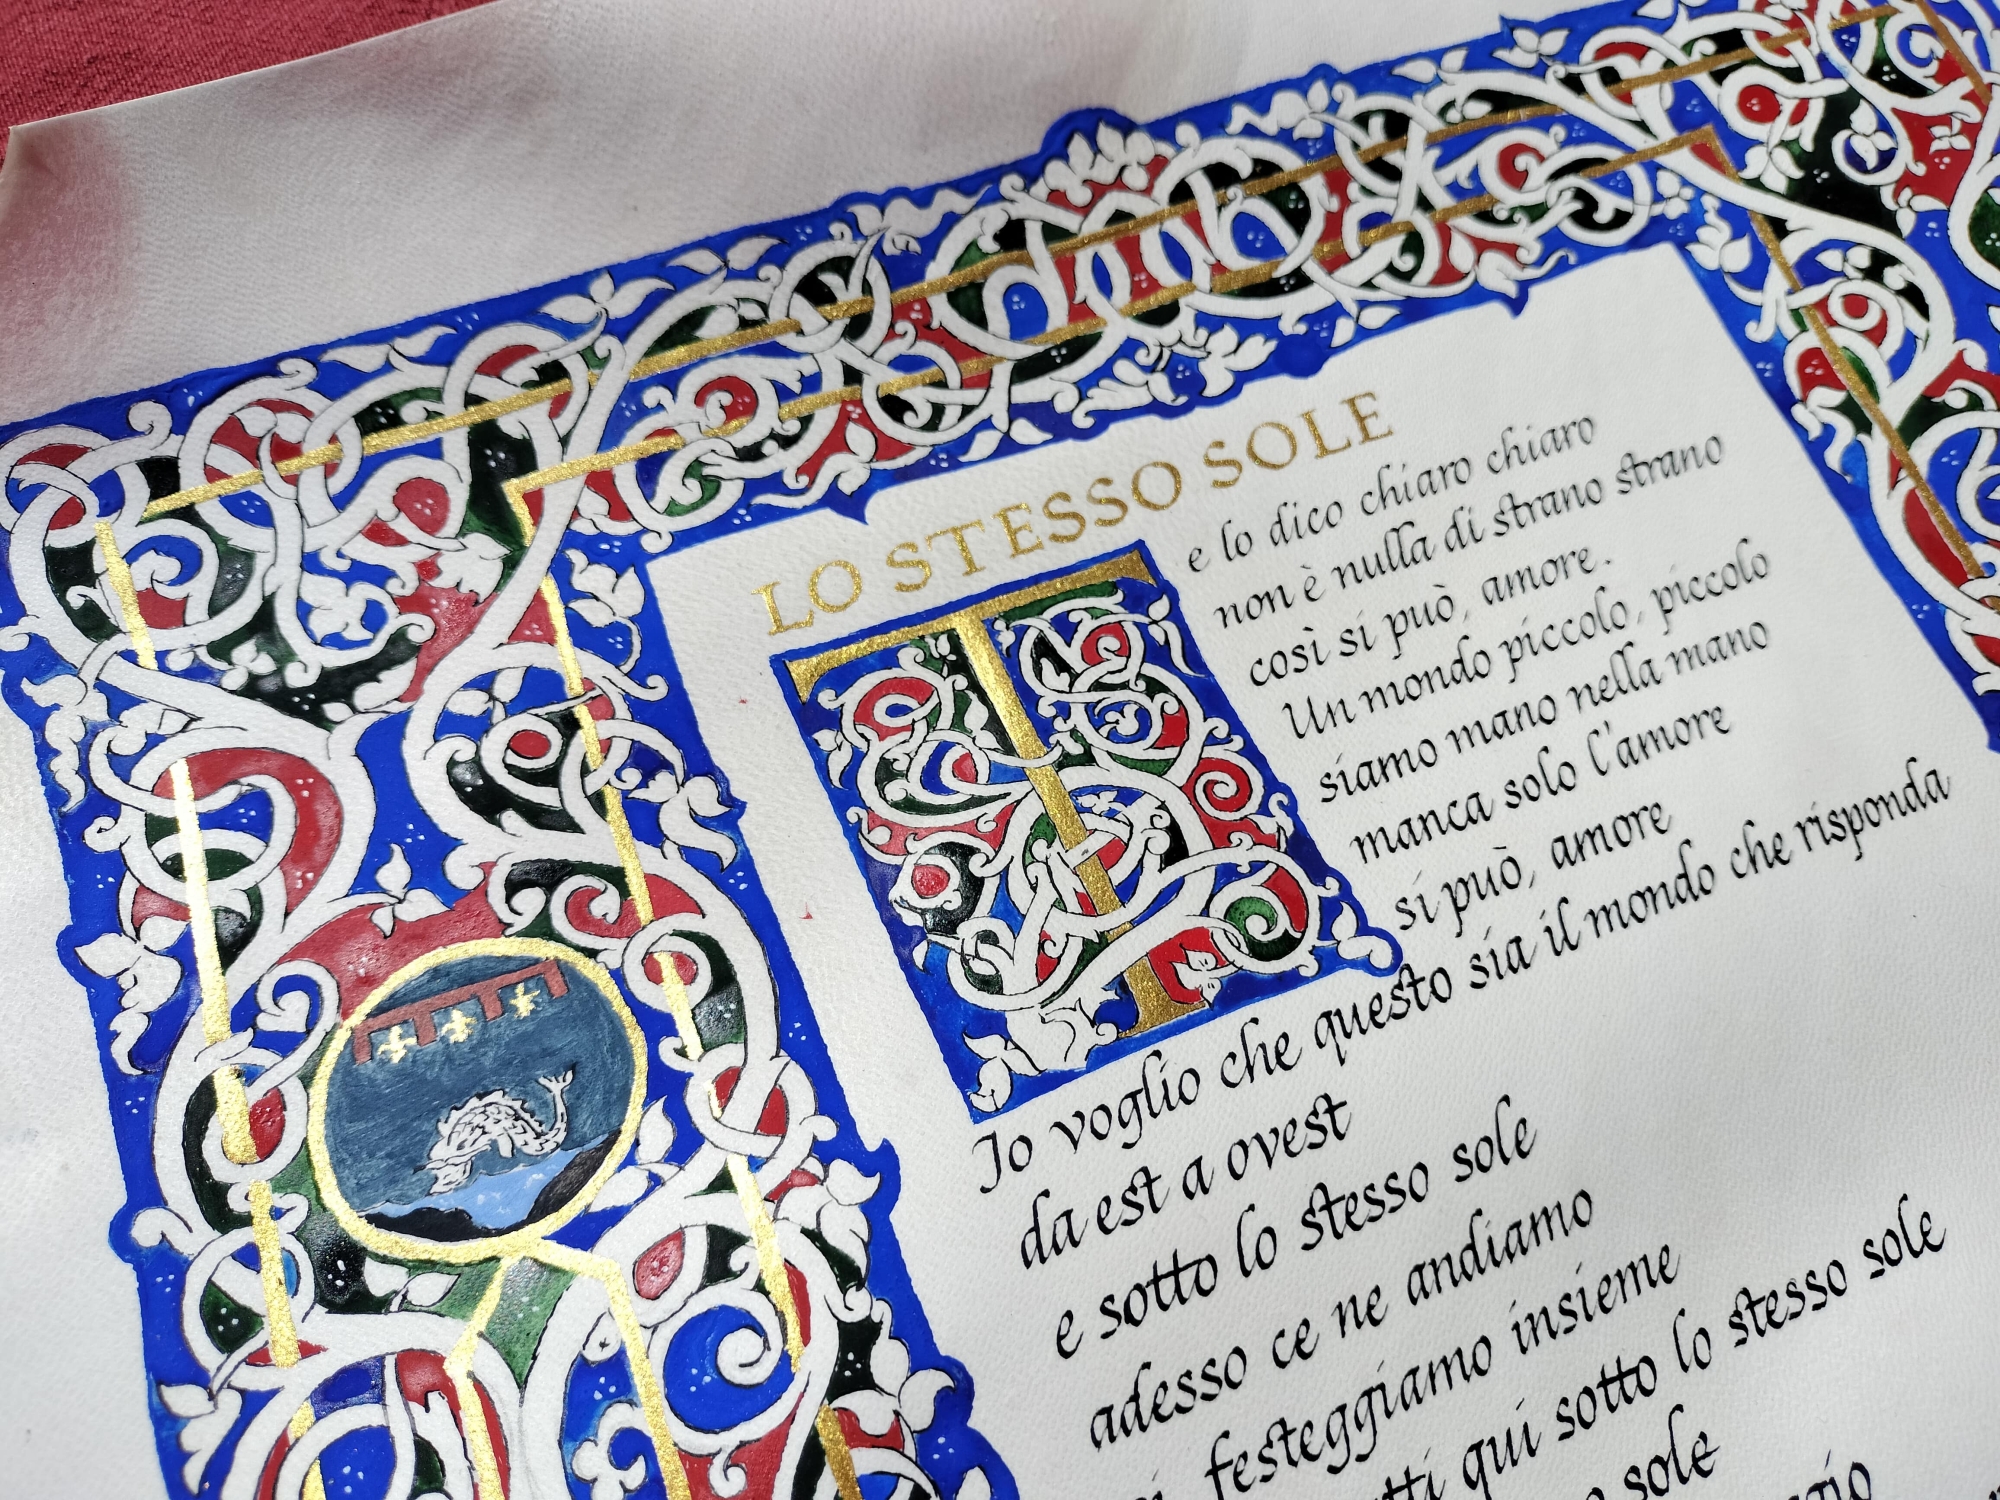 LO STESSO SOLE
T
e lo dico chiaro chiaro
non è nulla di strano strano
così si può, amore.
Un mondo piccolo, piccolo
siamo mano nella mano
manca solo l'amore
si può, amore
Io voglio che questo sia il mondo che risponda
da est a ovest
e sotto lo stesso sole
adesso ce ne andiamo
festeggiamo insieme
qui sotto lo stesso sole
sole